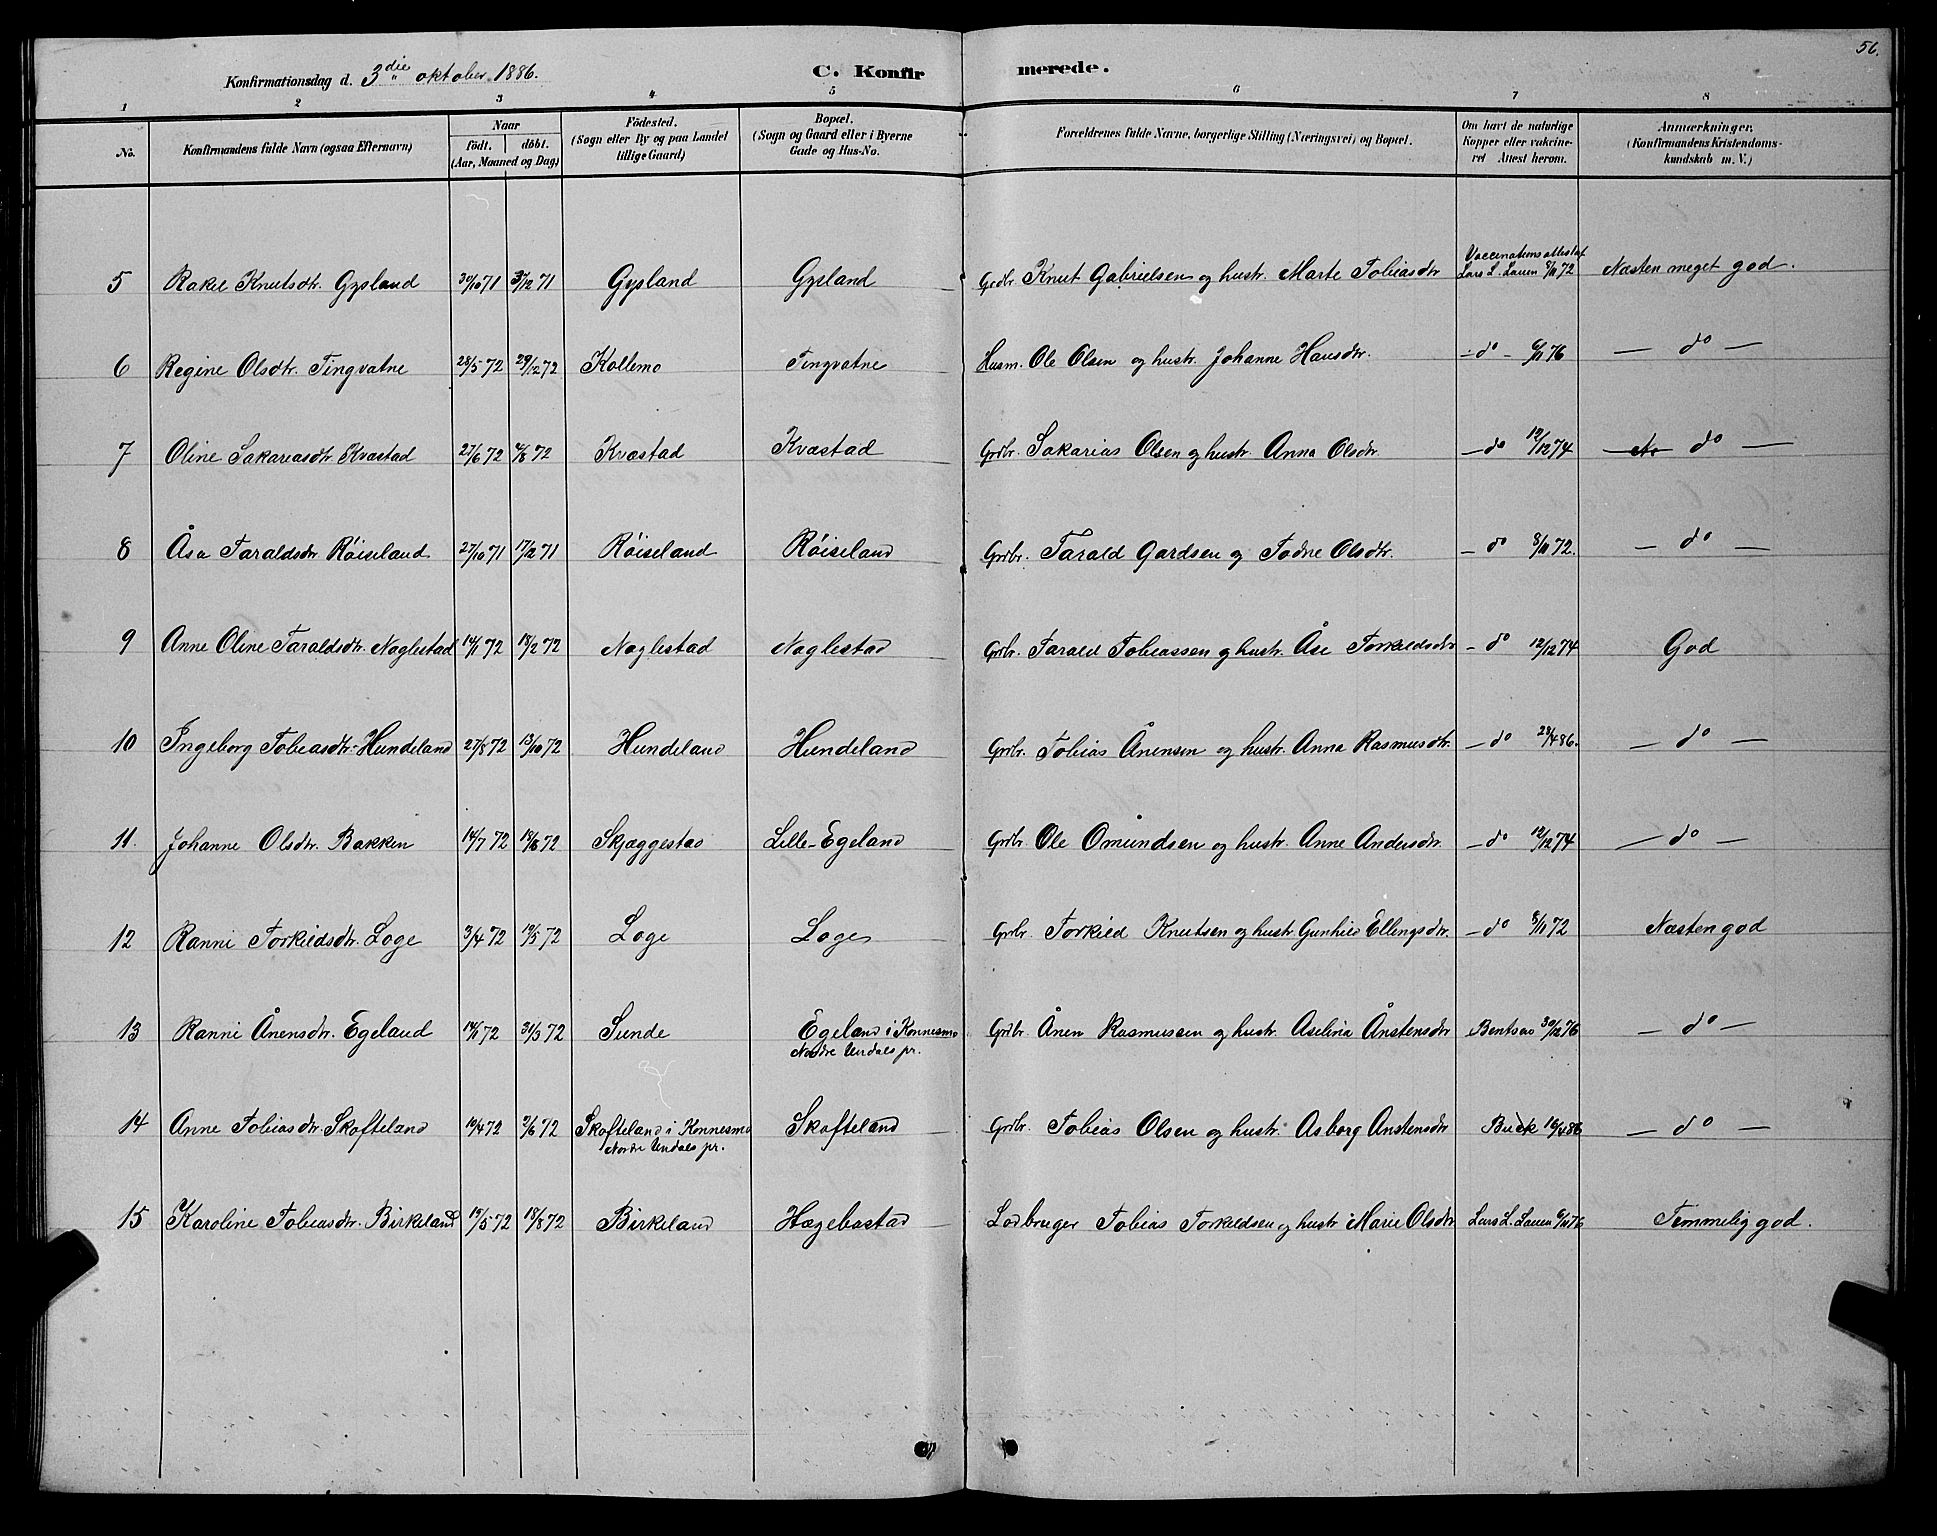 56.
Konfirmationsdag d. 3die oktober 1886.
C. Konfirmerede.
1 2 3 4 5 6 7 8
No. Konfirmandens fulde Navn (ogsaa Efternavn) Naar født. døbt. (Aar, Maaned og Dag) Fødested. (Sogn eller By og paa Landet tillige Gaard) Bopæl. (Sogn og Gaard eller i Byerne Gade og Hus-No. Forældrenes fulde Navne, borgerlige Stilling (Næringsvei) og Bopæl. Om havt de naturlige Kopper eller vakcineret Attest herom. Anmærkninger. (Konfirmandens Kristendomskundskab m. V.)
5 Rakel Knutsdtr. Gysland 30/10 71 3/12 71 Gysland Gysland Grdbr. Knut Gabrielsen og hustr. Marte Tobiasdtr Vaccinationsattest af Lars L. Lauen 8/11 72 Næsten meget god.
6 Regine Olsdtr. Tingvatne 28/5 72 29/12 72 Kollemo Tingvatne Husm. Ole Olsen og hustr. Johanne Hansdtr. - do - 6/11 76 — do —
7 Oline Sakariasdtr. Kvæstad 27/6 72 4/8 72 Kvæstad Kvæstad Grdbr. Sakarias Olsen og hustr. Anna Olsdtr. - do 12/12 74 — do —
8 Åsa Taraldsdtr Røiseland 27/10 71 17/12 71 Røiseland Røiseland Grdbr. Tarald Gardsen og Todne Olsdtr. - do 8/11 72. — do —
9 Anne Oline Taraldsdtr. Naglestad 14/1 72 18/2 72 Naglestad Naglestad Grdbr. Tarald Tobiassen og hustr. Åse Torkildsdtr - do 12/12 74 God
10 Ingeborg Tobiasdtr. Hundeland 27/8 72 13/10 72 Hundeland Hundeland Grdbr. Tobias Ånensen og hustr. Anna Rasmusdtr. - do 28/4 86. — do —
11. Johanne Olsdtr. Bakken 14/7 72 18/8 72 Skjeggestad Lille-Egeland Grdbr. Ole Omundsen og hustr. Anne Andersdtr. - do 12/12 74 — do —
12 Ranni Torkildsdtr. Loge 3/4 72 19/5 72 Loge Loge Grdbr. Torkild Knutsen og hustr. Gunhild Ellingsdtr. - do 8/11 72 Næsten god
13 Ranni Ånensdtr. Egeland 14/1 72 31/3 72 Sunde Egeland i Konnesmo Nordre Undals pr. Grdbr. Ånen Rasmussen og hustr. Aselina Ånstensdtr Bentsen 30/12 76 — do —
14 Anne Tobiasdtr. Skofteland 10/4 72 9/6 72 Skofteland i Konnesmo Nordre Undals pr. Skofteland Grdbr. Tobias Olsen og hustr. Asborg Anstensdtr Buck 16/4 86 — do —
15 Karoline Tobiasdtr. Birkeland 19/5 72 18/8 72 Birkeland Hægebostad Lodbruger Tobias Torkildsen og hustr Marie Olsdtr Lars L. Lauen 6/11 76 Temmelig god.